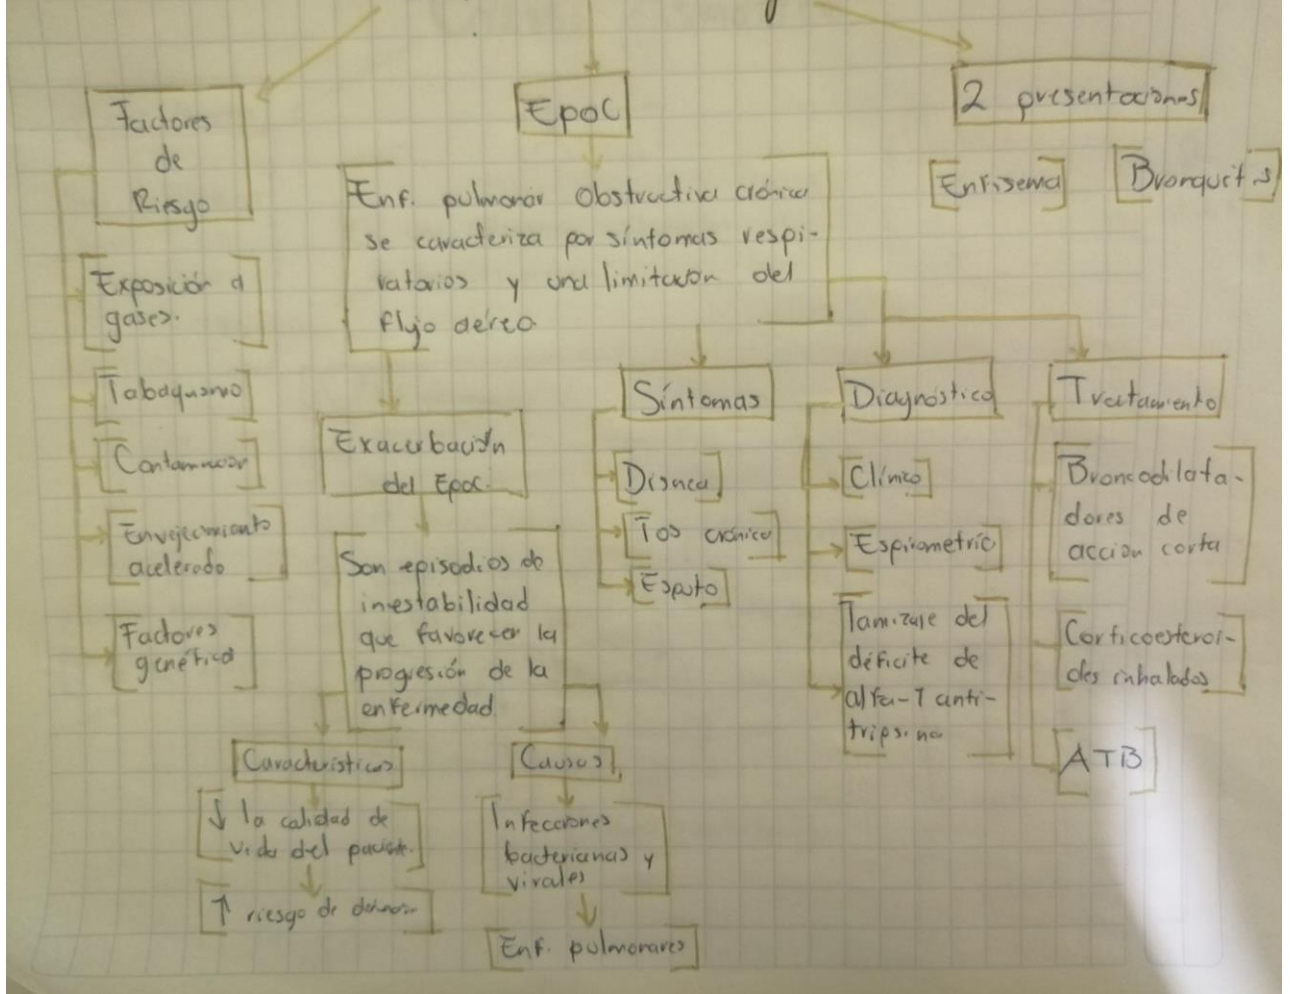 Factores
de
Riesgo
Exposición a
gases.
Tabaquismo
Contaminación
Envejecimiento
acelerado
Factores
genético
Epoc
Enf. pulmonar Obstructiva crónica
se caracteriza por síntomas respi-
ratorios y una limitación del
flujo aéreo
Exacerbación
del Epoc.
Son episodios de
inestabilidad
que favorecen la
progresión de la
enfermedad.
Características
↓ la calidad de
vida del paciente.
↑ riesgo de
Causas
Infecciones
bacterianas y
virales
Enf. pulmonares
Síntomas
Disnea
Tos crónica
Esputo
Diagnóstico
Clínico
Espirometría
Tamizaje del
déficite de
alfa-1 anti-
tripsina
2 presentaciones
Enfisema
Bronquitis
Tratamiento
Broncodilata-
dores de
acción corta
Corticoesteroi-
des inhalados
ATB